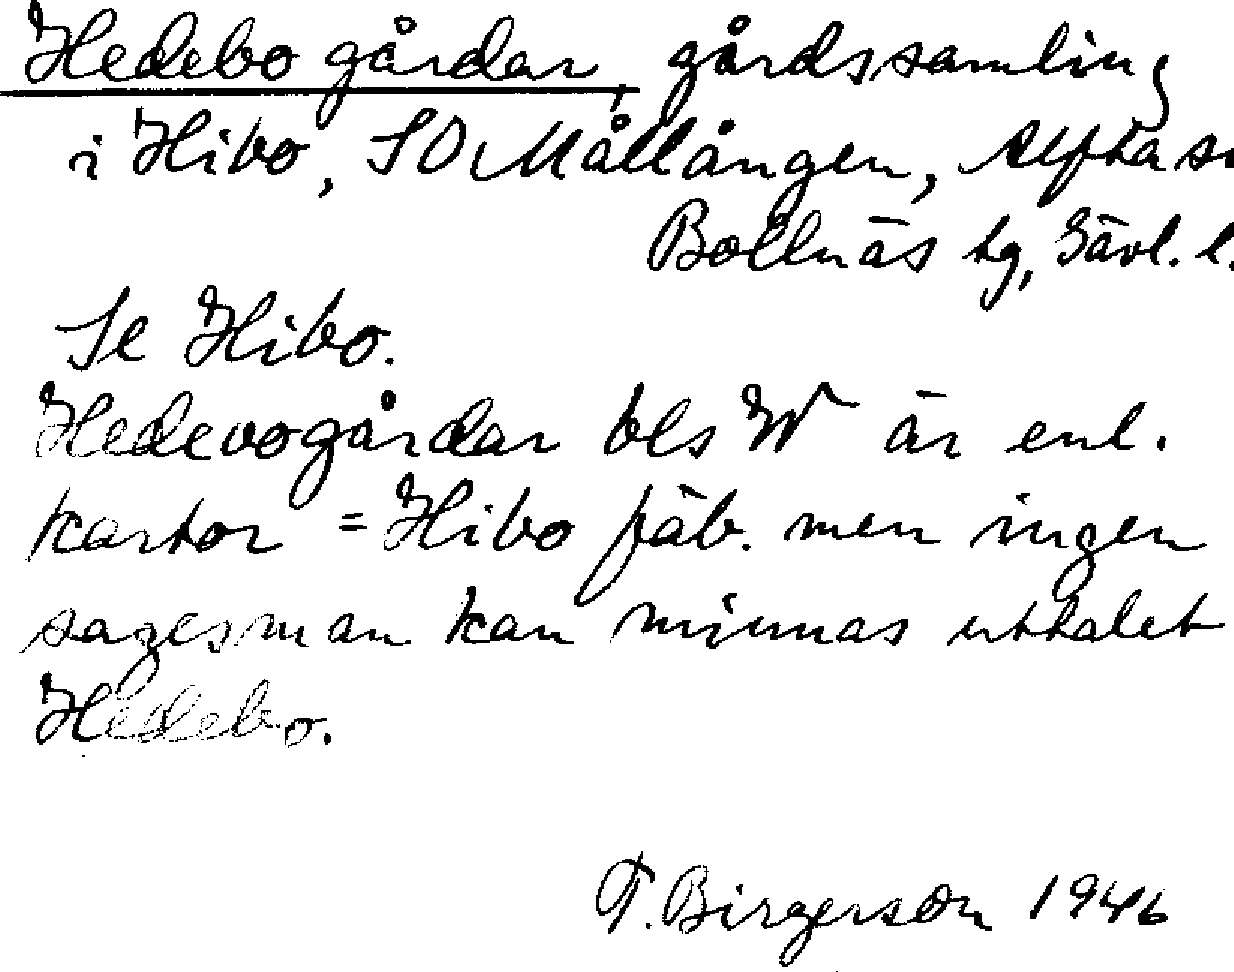 Hedebo gårdar, gårdssamling
i Hibo, SO Mållången, Alfta sn
Bollnäs tg, Gävl. l.
Se Hibo.
Hedevogårdar bls W är enl.
kartor = Hibo fäb. men ingen
sagesman kan minnas uttalet
Hedebo.
T. Birgerson 1946